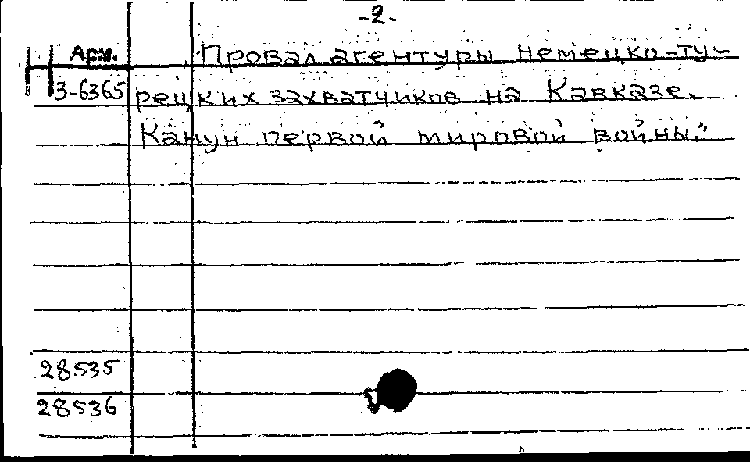 -2-
Арм. Провал агентуры немецко-ту-
3-6365 рецких захватчиков на Кавказе.
Канун первой мировой войны."
28535
28536